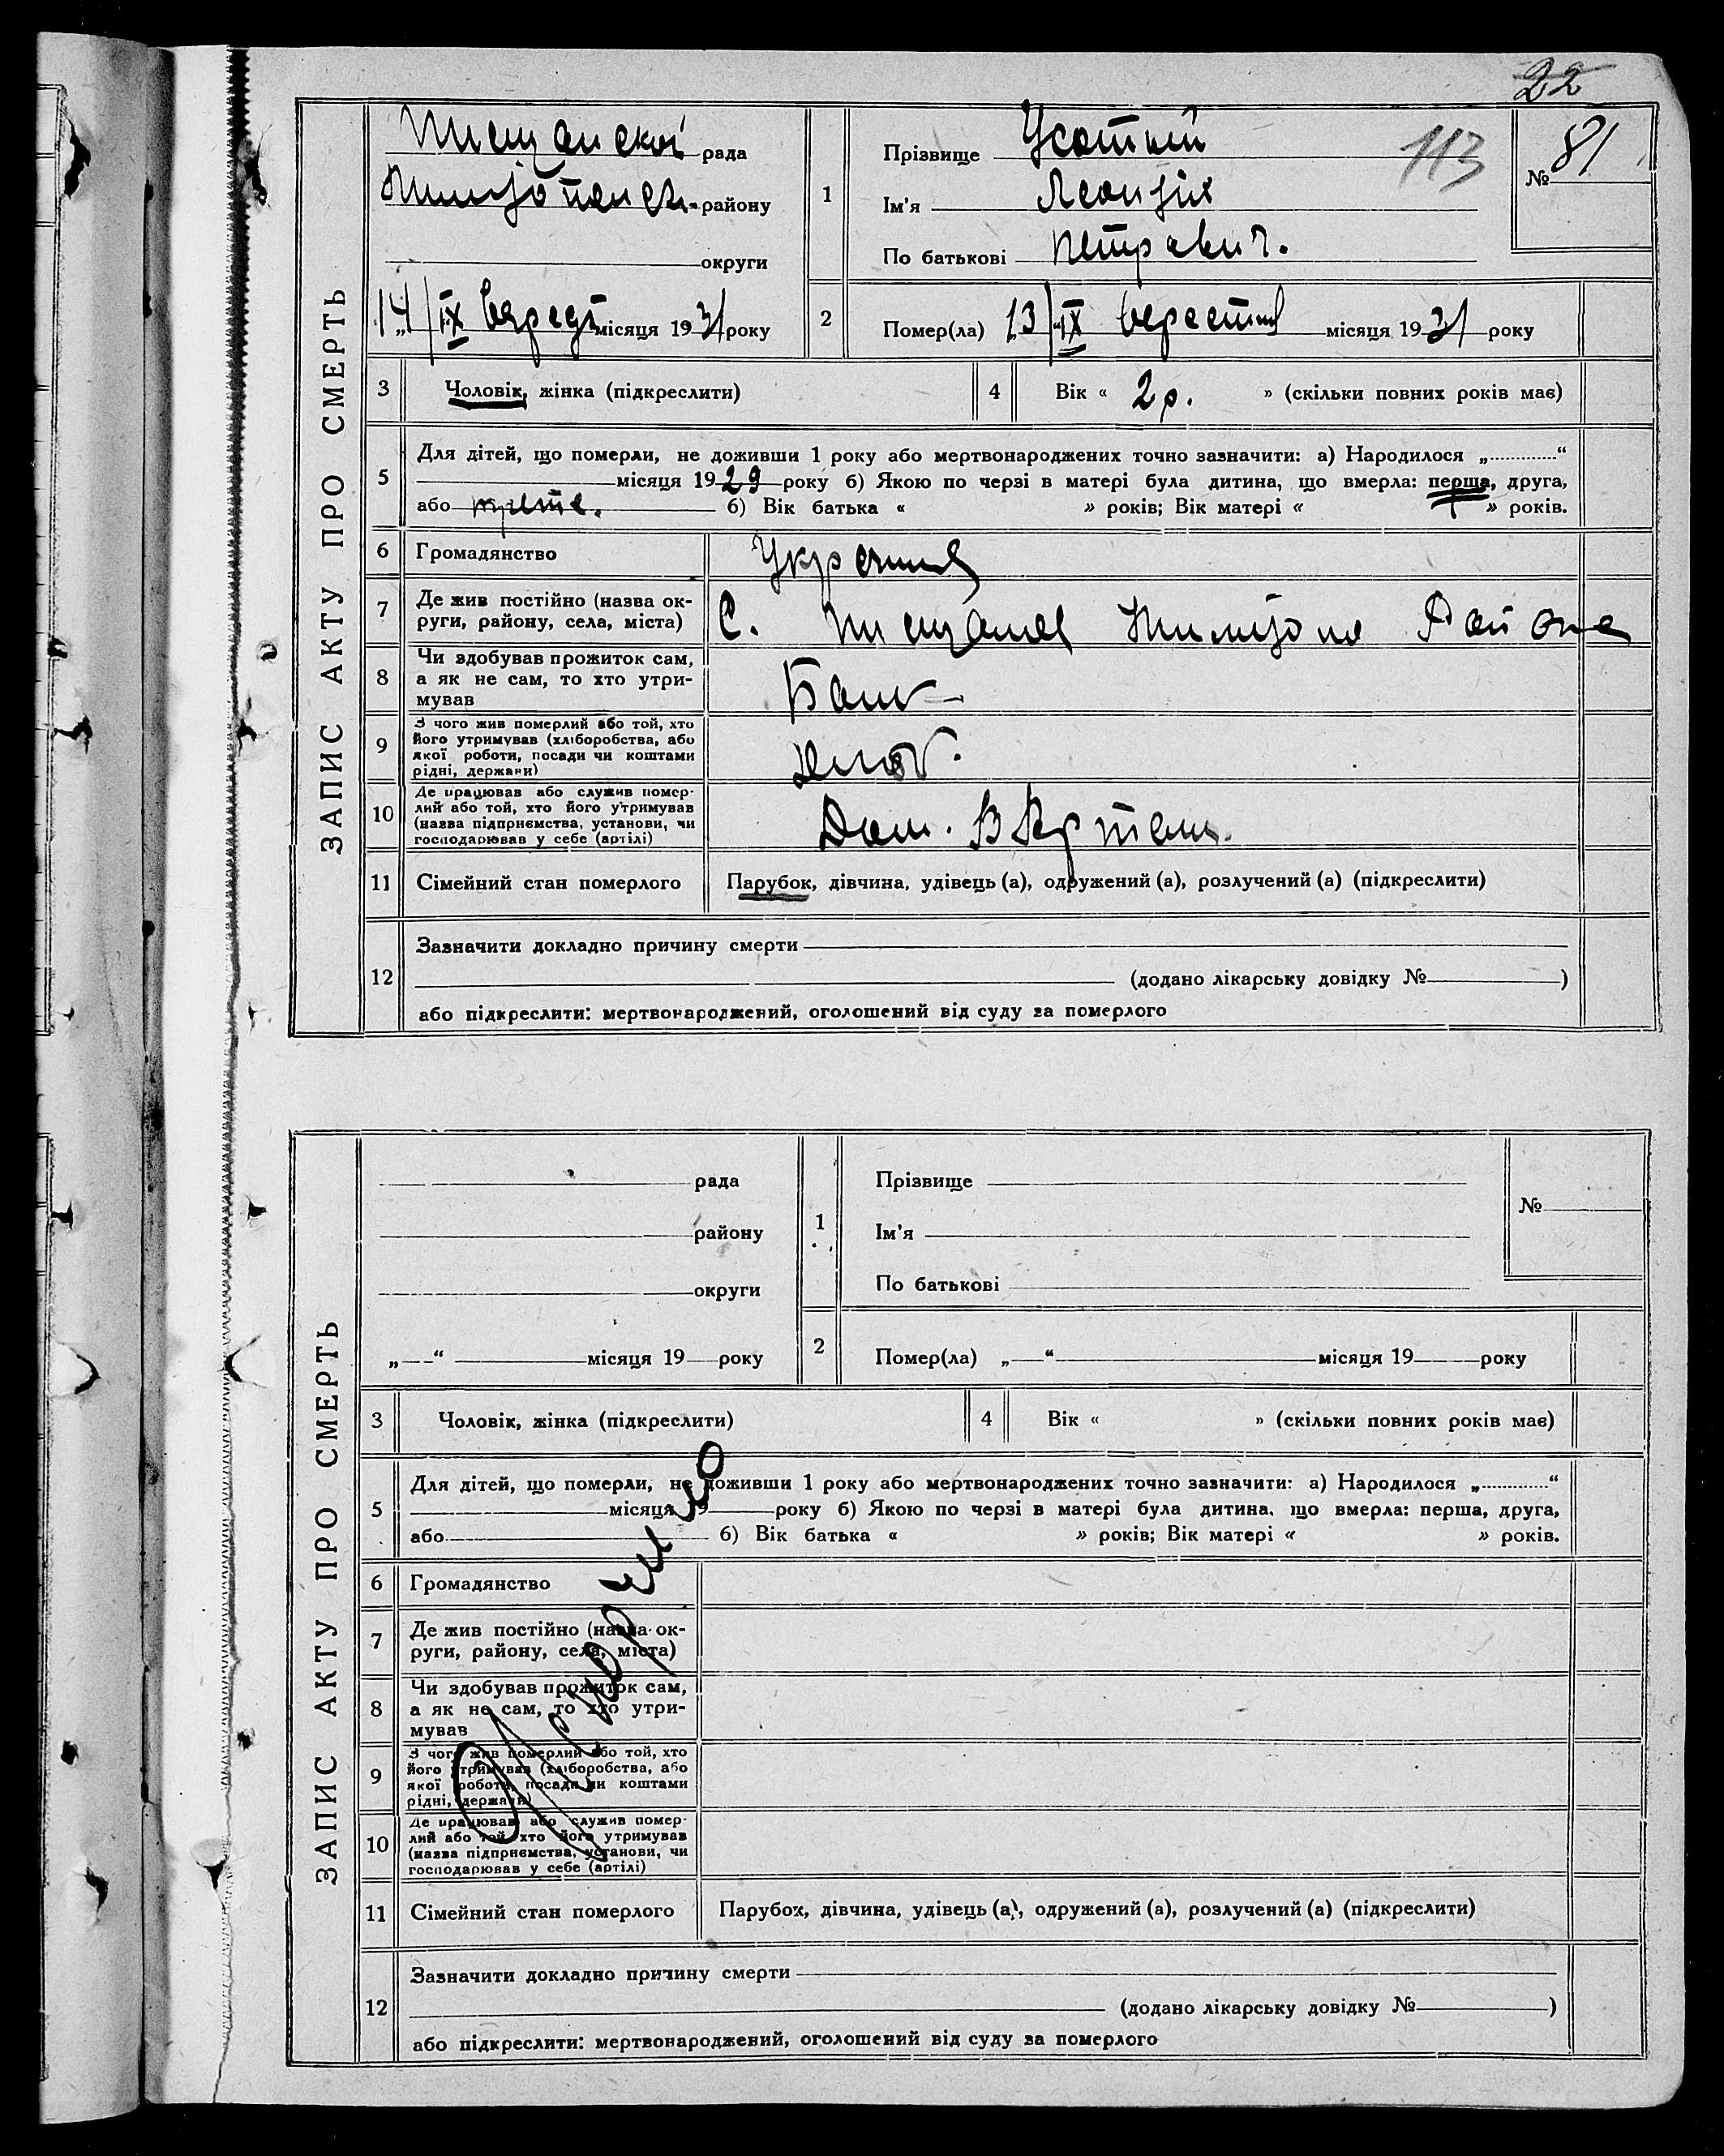 22
113
ЗАПИС АКТУ ПРО СМЕРТЬ
Пищанскої рада
району
округи
14/IX місяця 1931 року
1
Прізвище Усатий
Ім'я
По батькові Петрович.
№ 81
2
Помер(ла) 13/IX вересня місяця 1931 року
3 Чоловік, жінка (підкреслити)
4 Вік « 2 р. » (скільки повних років має)
5 Для дітей, що померли, не доживши 1 року або мертвонароджених точно зазначити: а) Народилося „ “
місяця 1929 року б) Якою по черзі в матері була дитина, що вмерла: перша, друга,
або 6) Вік батька « » років; Вік матері « » років.
6 Громадянство
7 Де жив постійно (назва ок-
руги, району, села, міста)
С. Района
8 Чи здобував прожиток сам,
а як не сам, то хто утри-
мував
9 З чого жив померлий або той, хто
його утримував (хліборобства, або
якої роботи, посади чи коштами
рідні, держави)
10 Де працював або служив помер-
лий або той, хто його утримував
(назва підприємства, установи, чи
господарював у себе (артілі)
11 Сімейний стан померлого
Парубок, дівчина, удівець (а), одружений (а), розлучений (а) (підкреслити)
12 Зазначити докладно причину смерти
(додано лікарську довідку № )
або підкреслити: мертвонароджений, оголошений від суду за померлого
ЗАПИС АКТУ ПРО СМЕРТЬ
рада
району
округи
„ “ місяця 19 року
1
Прізвище
Ім'я
По батькові
№
2
Помер(ла) „ “ місяця 19 року
3 Чоловік, жінка (підкреслити)
4 Вік « » (скільки повних років має)
5 Для дітей, що померли, не доживши 1 року або мертвонароджених точно зазначити: а) Народилося „ “
місяця 19 року б) Якою по черзі в матері була дитина, що вмерла: перша, друга,
або 6) Вік батька « » років; Вік матері « » років.
6 Громадянство
7 Де жив постійно (назва ок-
руги, району, села, міста)
8 Чи здобував прожиток сам,
а як не сам, то хто утри-
мував
9 З чого жив померлий або той, хто
його утримував (хліборобства, або
якої роботи, посади чи коштами
рідні, держави)
10 Де працював або служив помер-
лий або той, хто його утримував
(назва підприємства, установи, чи
господарював у себе (артілі)
11 Сімейний стан померлого
Парубок, дівчина, удівець (а), одружений (а), розлучений (а) (підкреслити)
12 Зазначити докладно причину смерти
(додано лікарську довідку № )
або підкреслити: мертвонароджений, оголошений від суду за померлого